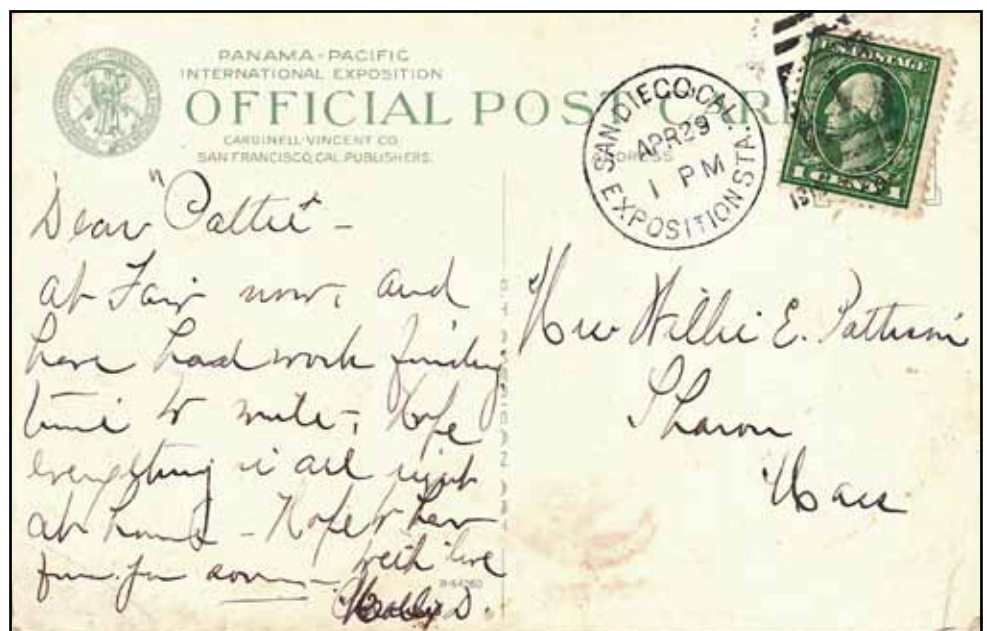 PANAMA-PACIFIC
INTERNATIONAL EXPOSITION
OFFICIAL POST CARD
CARDINELL-VINCENT CO.
SAN FRANCISCO, CAL. PUBLISHERS.
ADDRESS
SAN DIEGO, CAL.
APR 29
1 PM
EXPOSITION STA.
U.S. POSTAGE
1 CENT 1
Dear "Pattie" -
At Fair now, and
have had work finding
time to write, Hope
everything is all right
at home - Hope to hear
from you soon -
with love
D.
Willie E. Pattison
Sharon
Mass